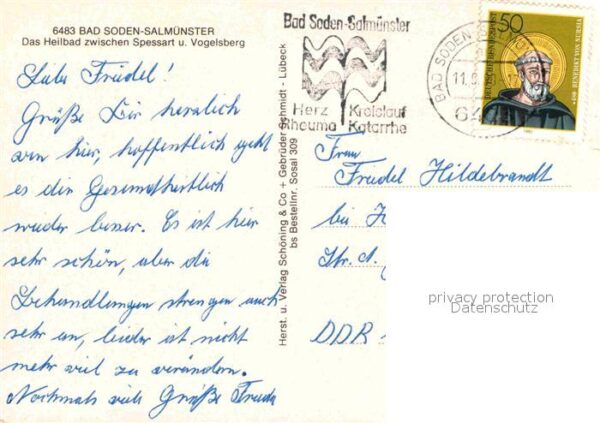 6483 BAD SODEN-SALMÜNSTER
Das Heilbad zwischen Spessart u. Vogelsberg
Liebe Friedel!
Grüße Dir herzlich
von hier, hoffentlich geht
es dir Gesundheitlich
wieder besser. Es ist hier
sehr schön, aber die
Behandlungen strengen auch
sehr an, leider ist nicht
mehr viel zu verändern.
Nochmals viele Grüße Frieda
Herst. u. Verlag Schöning & Co + Gebrüder Schmidt - Lübeck
bs Bestellnr. Sosal 309
Bad Soden-Salmünster
Herz Kreislauf
Rheuma Katarrhe
BAD SODEN
11.9.
50
DEUTSCHE BUNDESPOST
Frau
Friedel Hildebrandt
bei
Str.
DDR
privacy protection
Datenschutz